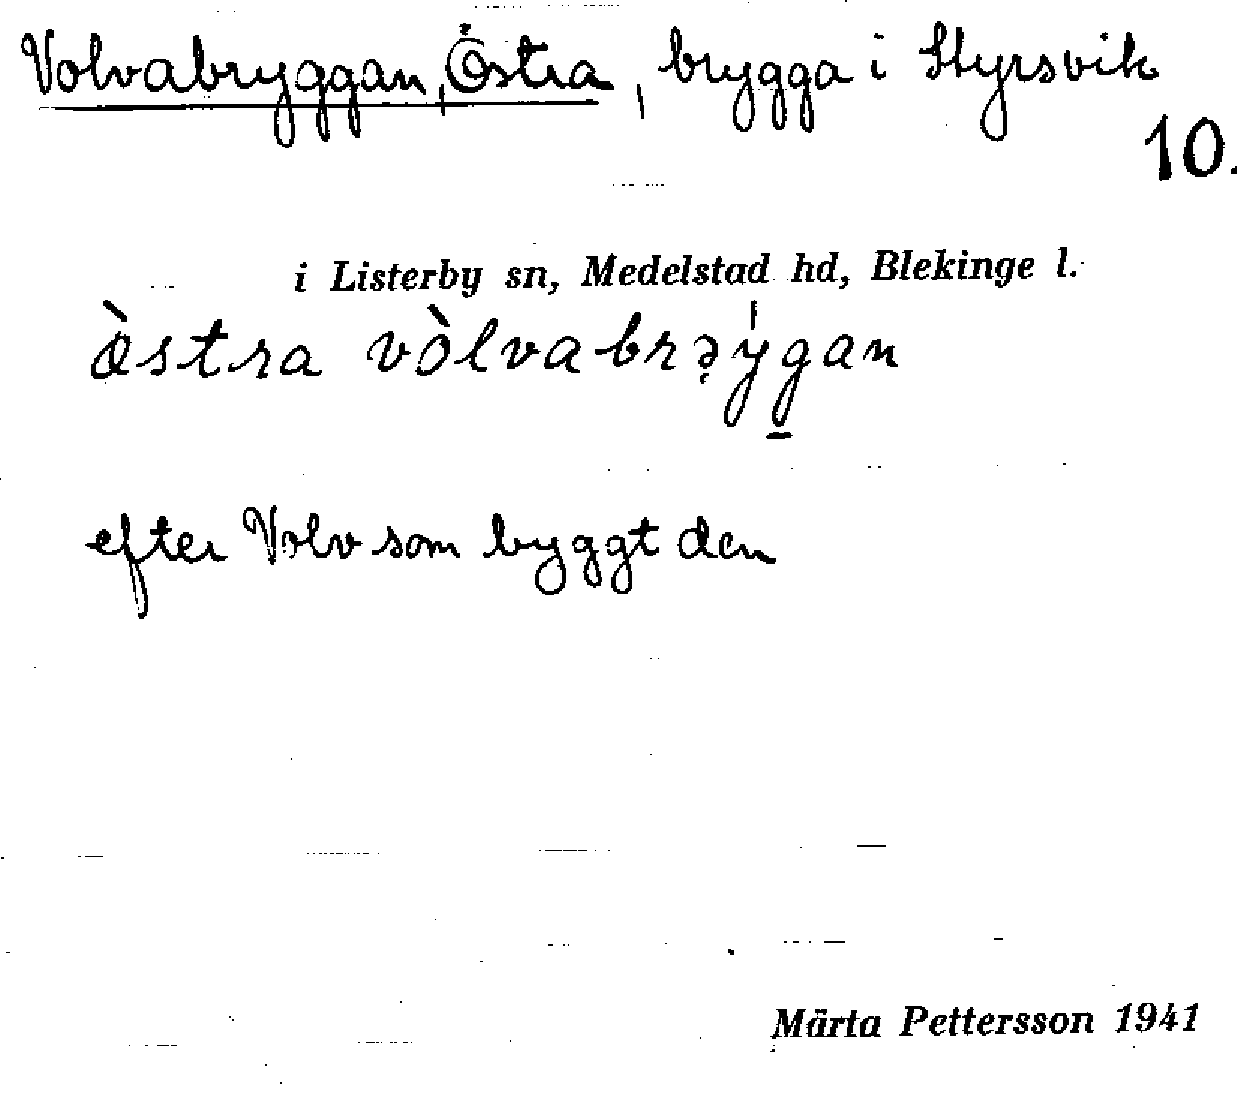 Volvabryggan, Östra, brygga i Styrsvik
10.
i Listerby sn, Medelstad hd, Blekinge l.
æ̀stra vòlvabrəýgan
efter Volv som byggt den
Märta Pettersson 1941